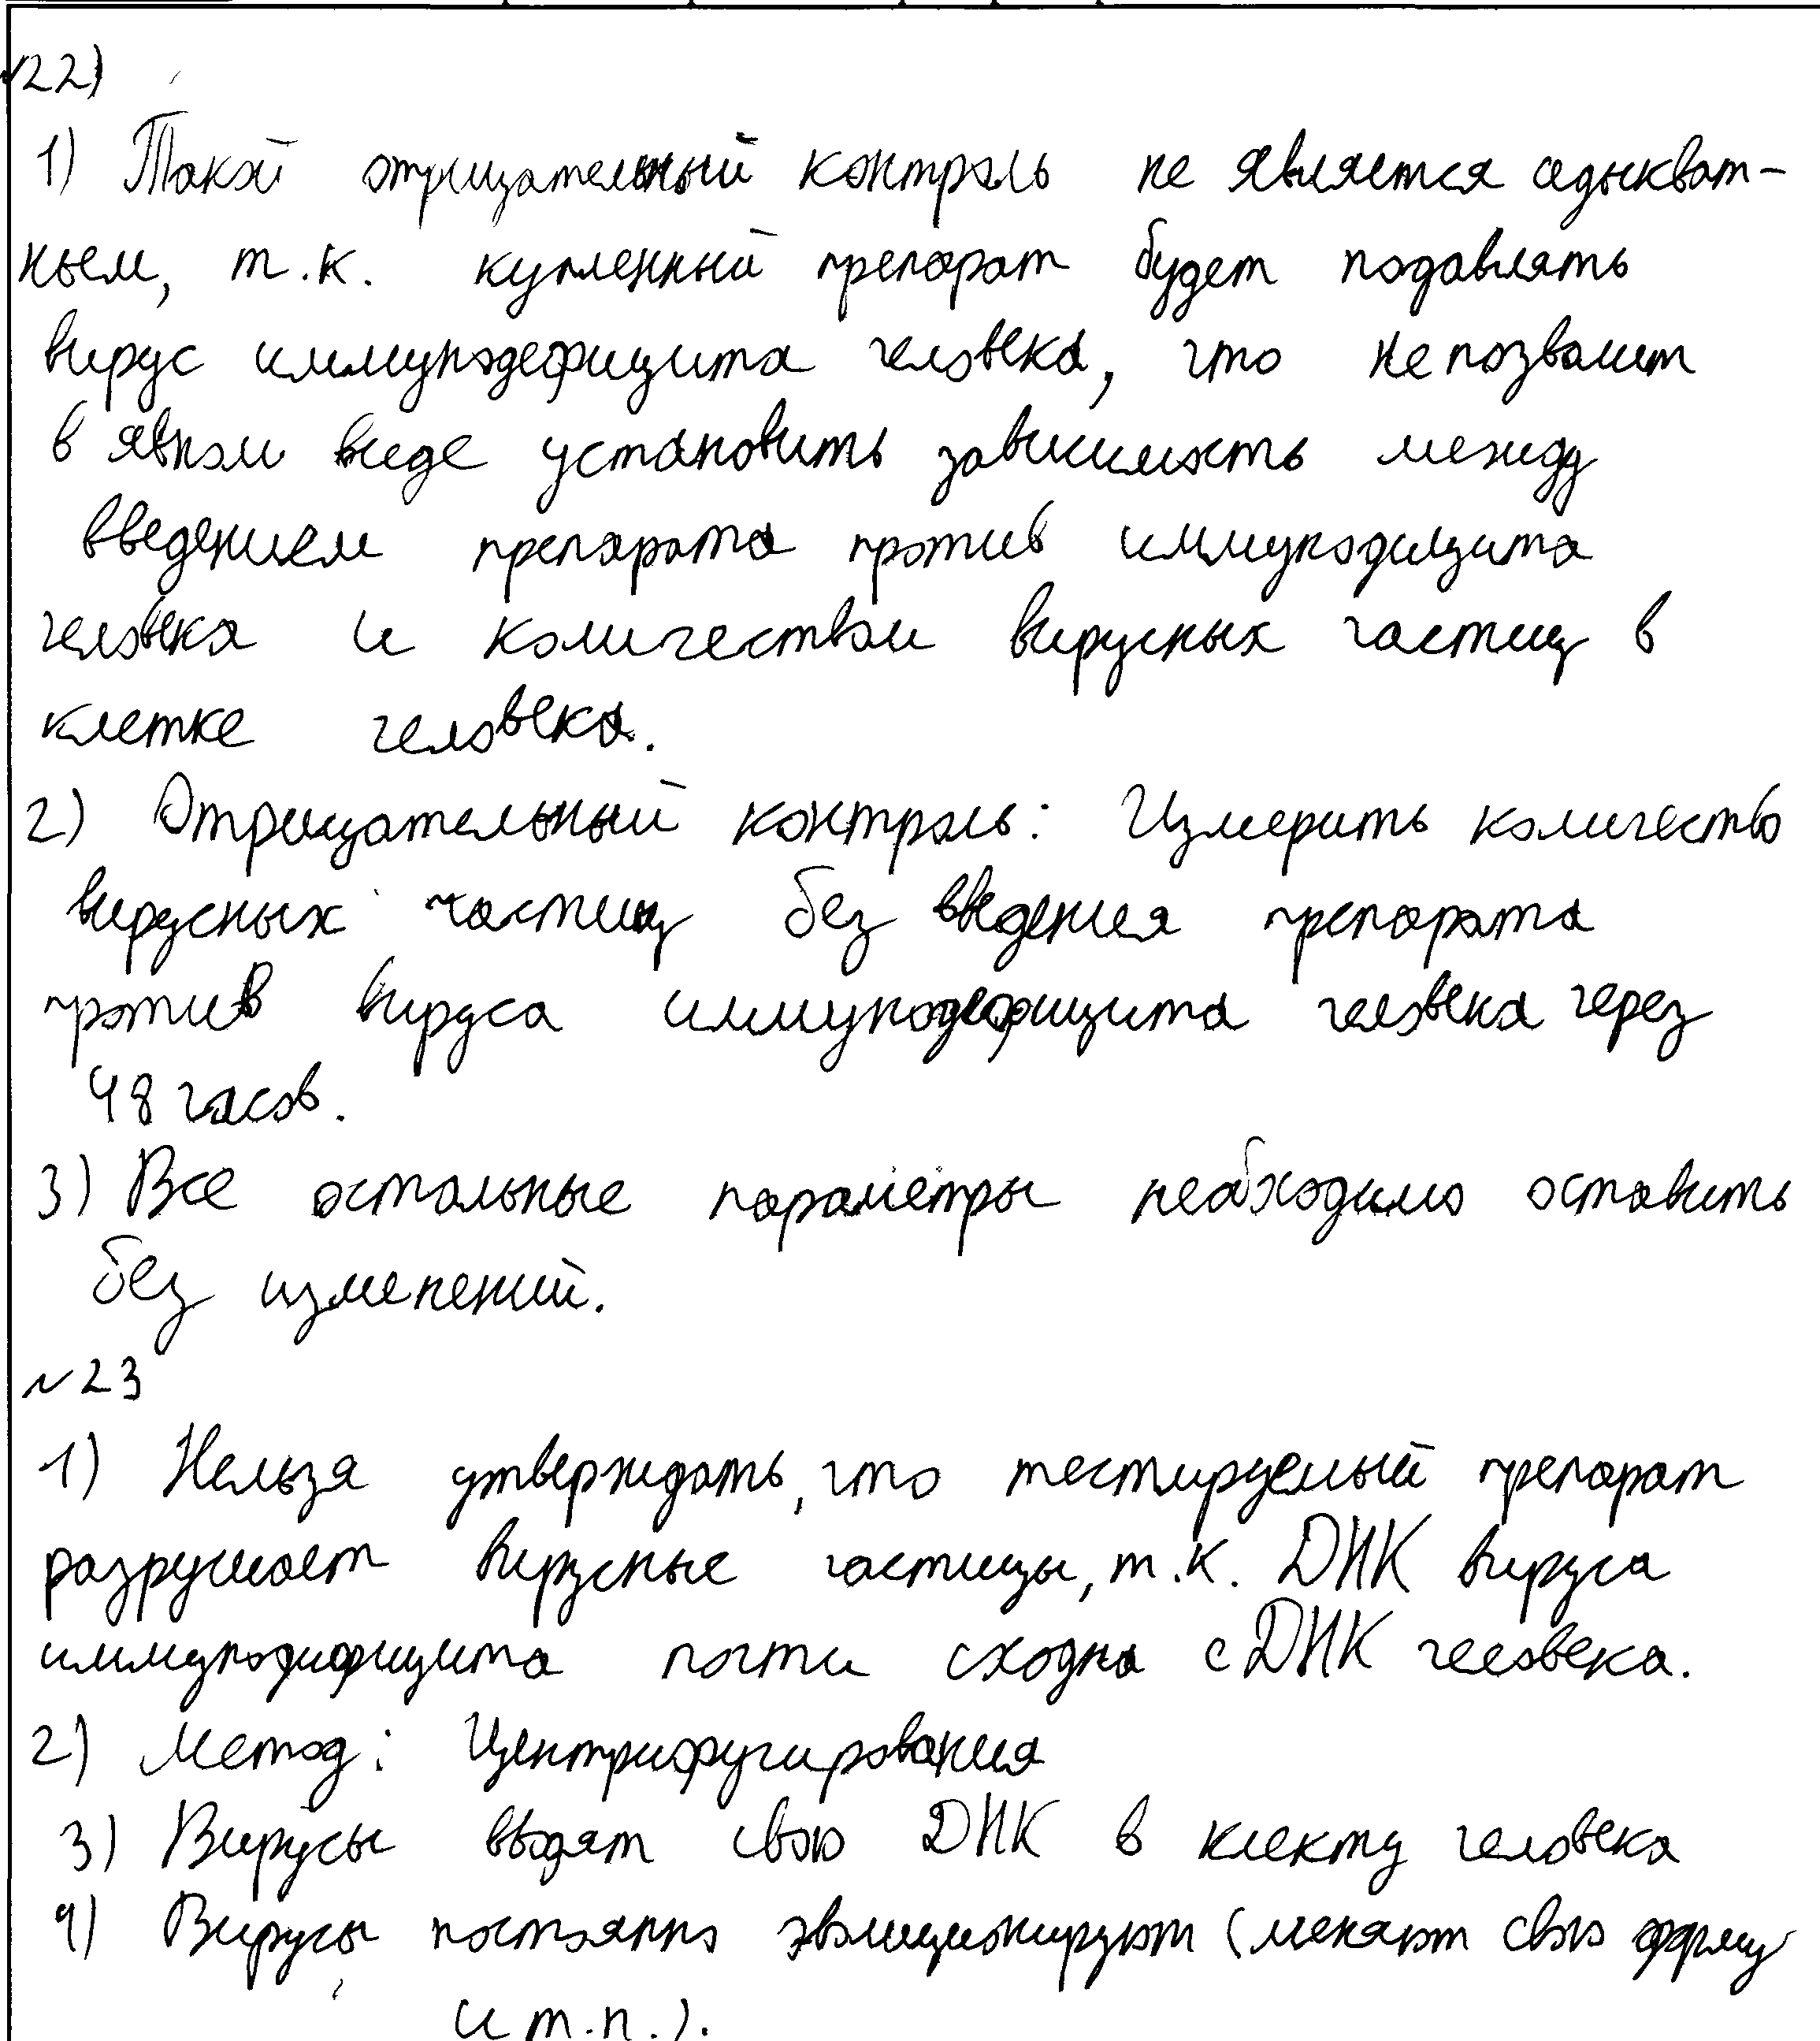 №22)
1) Такой отрицательный контроль не является адыкват-
ным, т.к. купленный препарат будет подавлять
вирус иммунодефицита человека, что не позволит
в явном виде установить зависимость между
введением препарата против иммунодицита
человека и количеством вирусных частиц в
клетке человека.
2) Отрицательный контроль: Измерить количество
вирусных частиц без введения препарата
против вируса иммунодефицита человека через
48 часов.
3) Все остальные параметры необходимо оставить
без изменений.
№23
1) Нельзя утверждать, что тестируемый препарат
разрушает вирусные частицы, т.к. ДНК вируса
иммунодифицита почти сходна с ДНК человека.
2) Метод: Центрифугирования
3) Вирусы вводят свою ДНК в клекту человека
4) Вирусы постоянно эволиционируют (меняют свою форму
и т.п.).